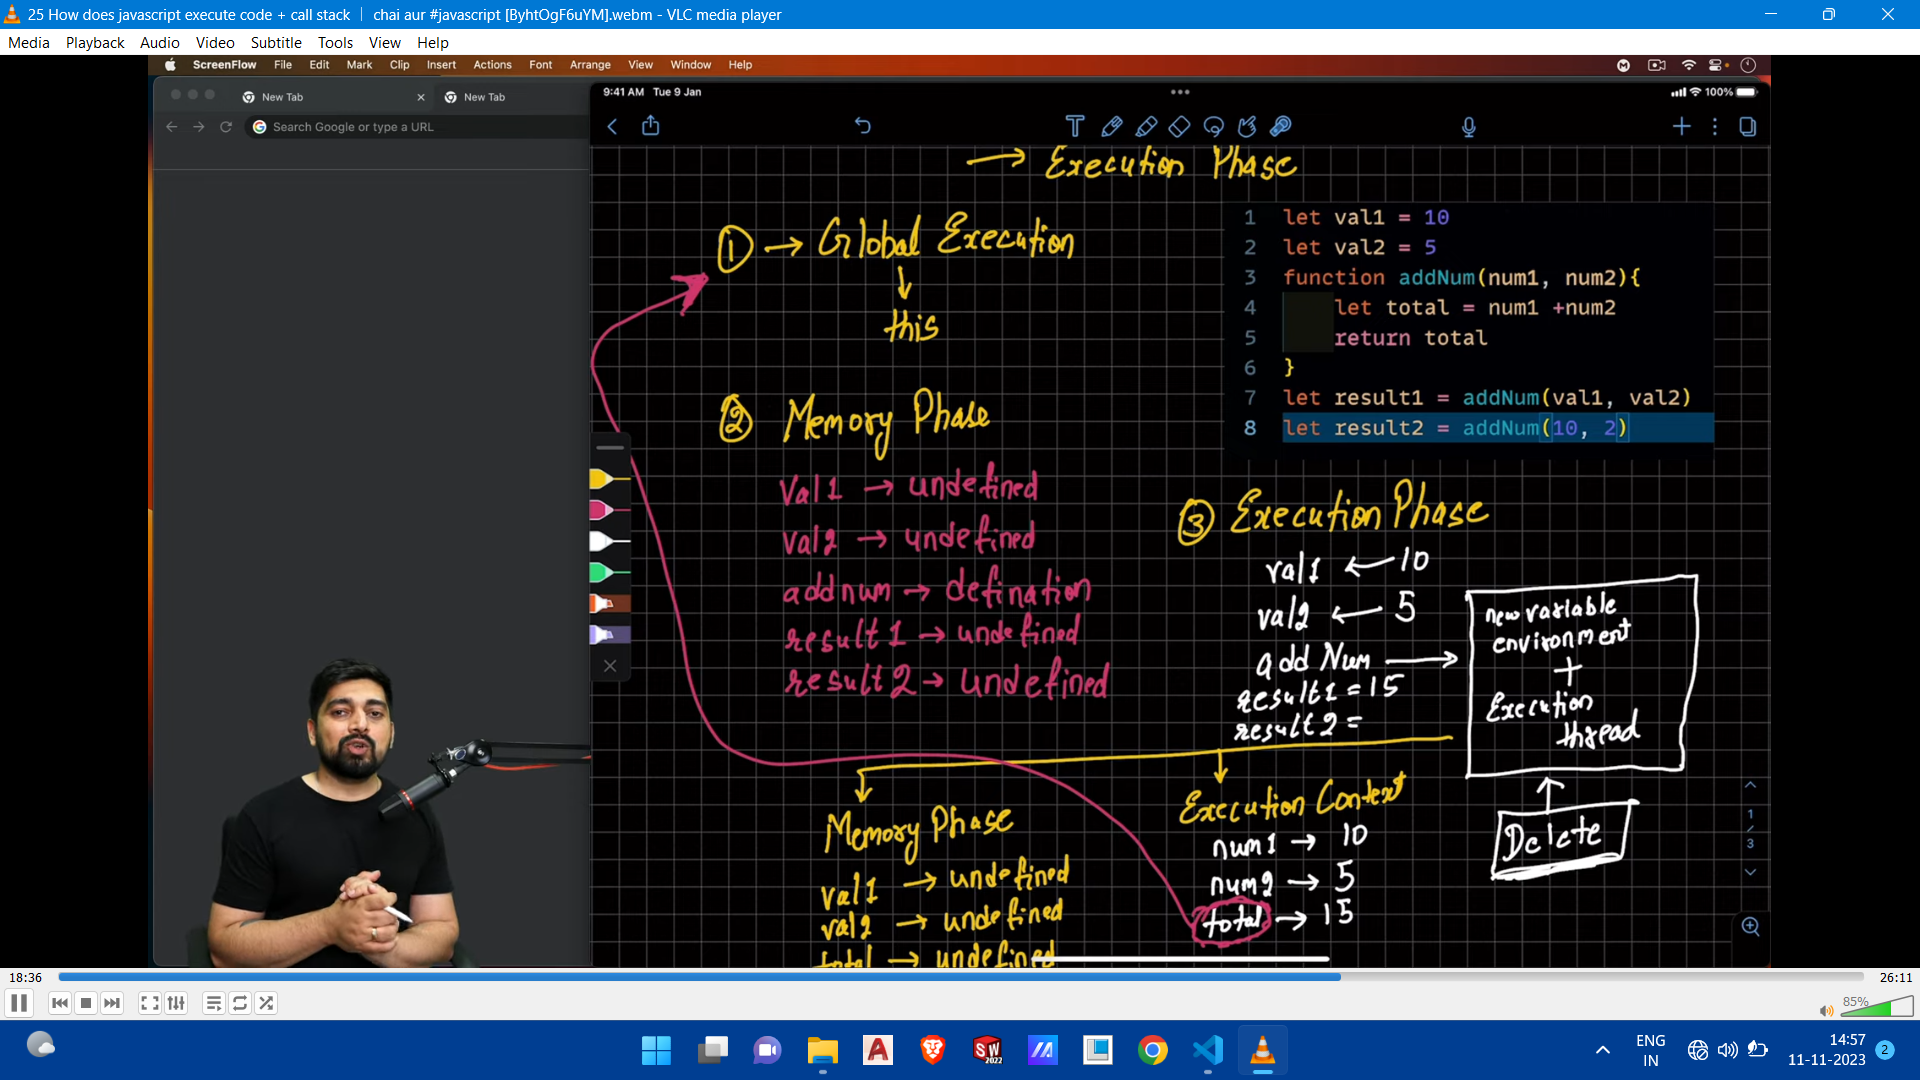 25 How does javascript execute code + call stack ｜ chai aur #javascript [ByhtOgF6uYM].webm - VLC media player
Media Playback Audio Video Subtitle Tools View Help
ScreenFlow File Edit Mark Clip Insert Actions Font Arrange View Window Help
New Tab
New Tab
Search Google or type a URL
9:41 AM Tue 9 Jan
100%
→ Execution Phase
① → Global Execution
↓
this
② Memory Phase
val1 → undefined
val2 → undefined
addnum → defination
result1 → undefined
result2 → undefined
1 let val1 = 10
2 let val2 = 5
3 function addNum(num1, num2){
4 let total = num1 +num2
5 return total
6 }
7 let result1 = addNum(val1, val2)
8 let result2 = addNum(10, 2)
③ Execution Phase
val1 ← 10
val2 ← 5
add Num →
result1 = 15
result2 =
new variable
environment
+
Execution
thread
Delete
Memory Phase
val1 → undefined
val2 → undefined
total → undefined
Execution Context
num1 → 10
num2 → 5
total → 15
1
/
3
18:36
26:11
85%
SW
2022
ENG
IN
14:57
11-11-2023
2